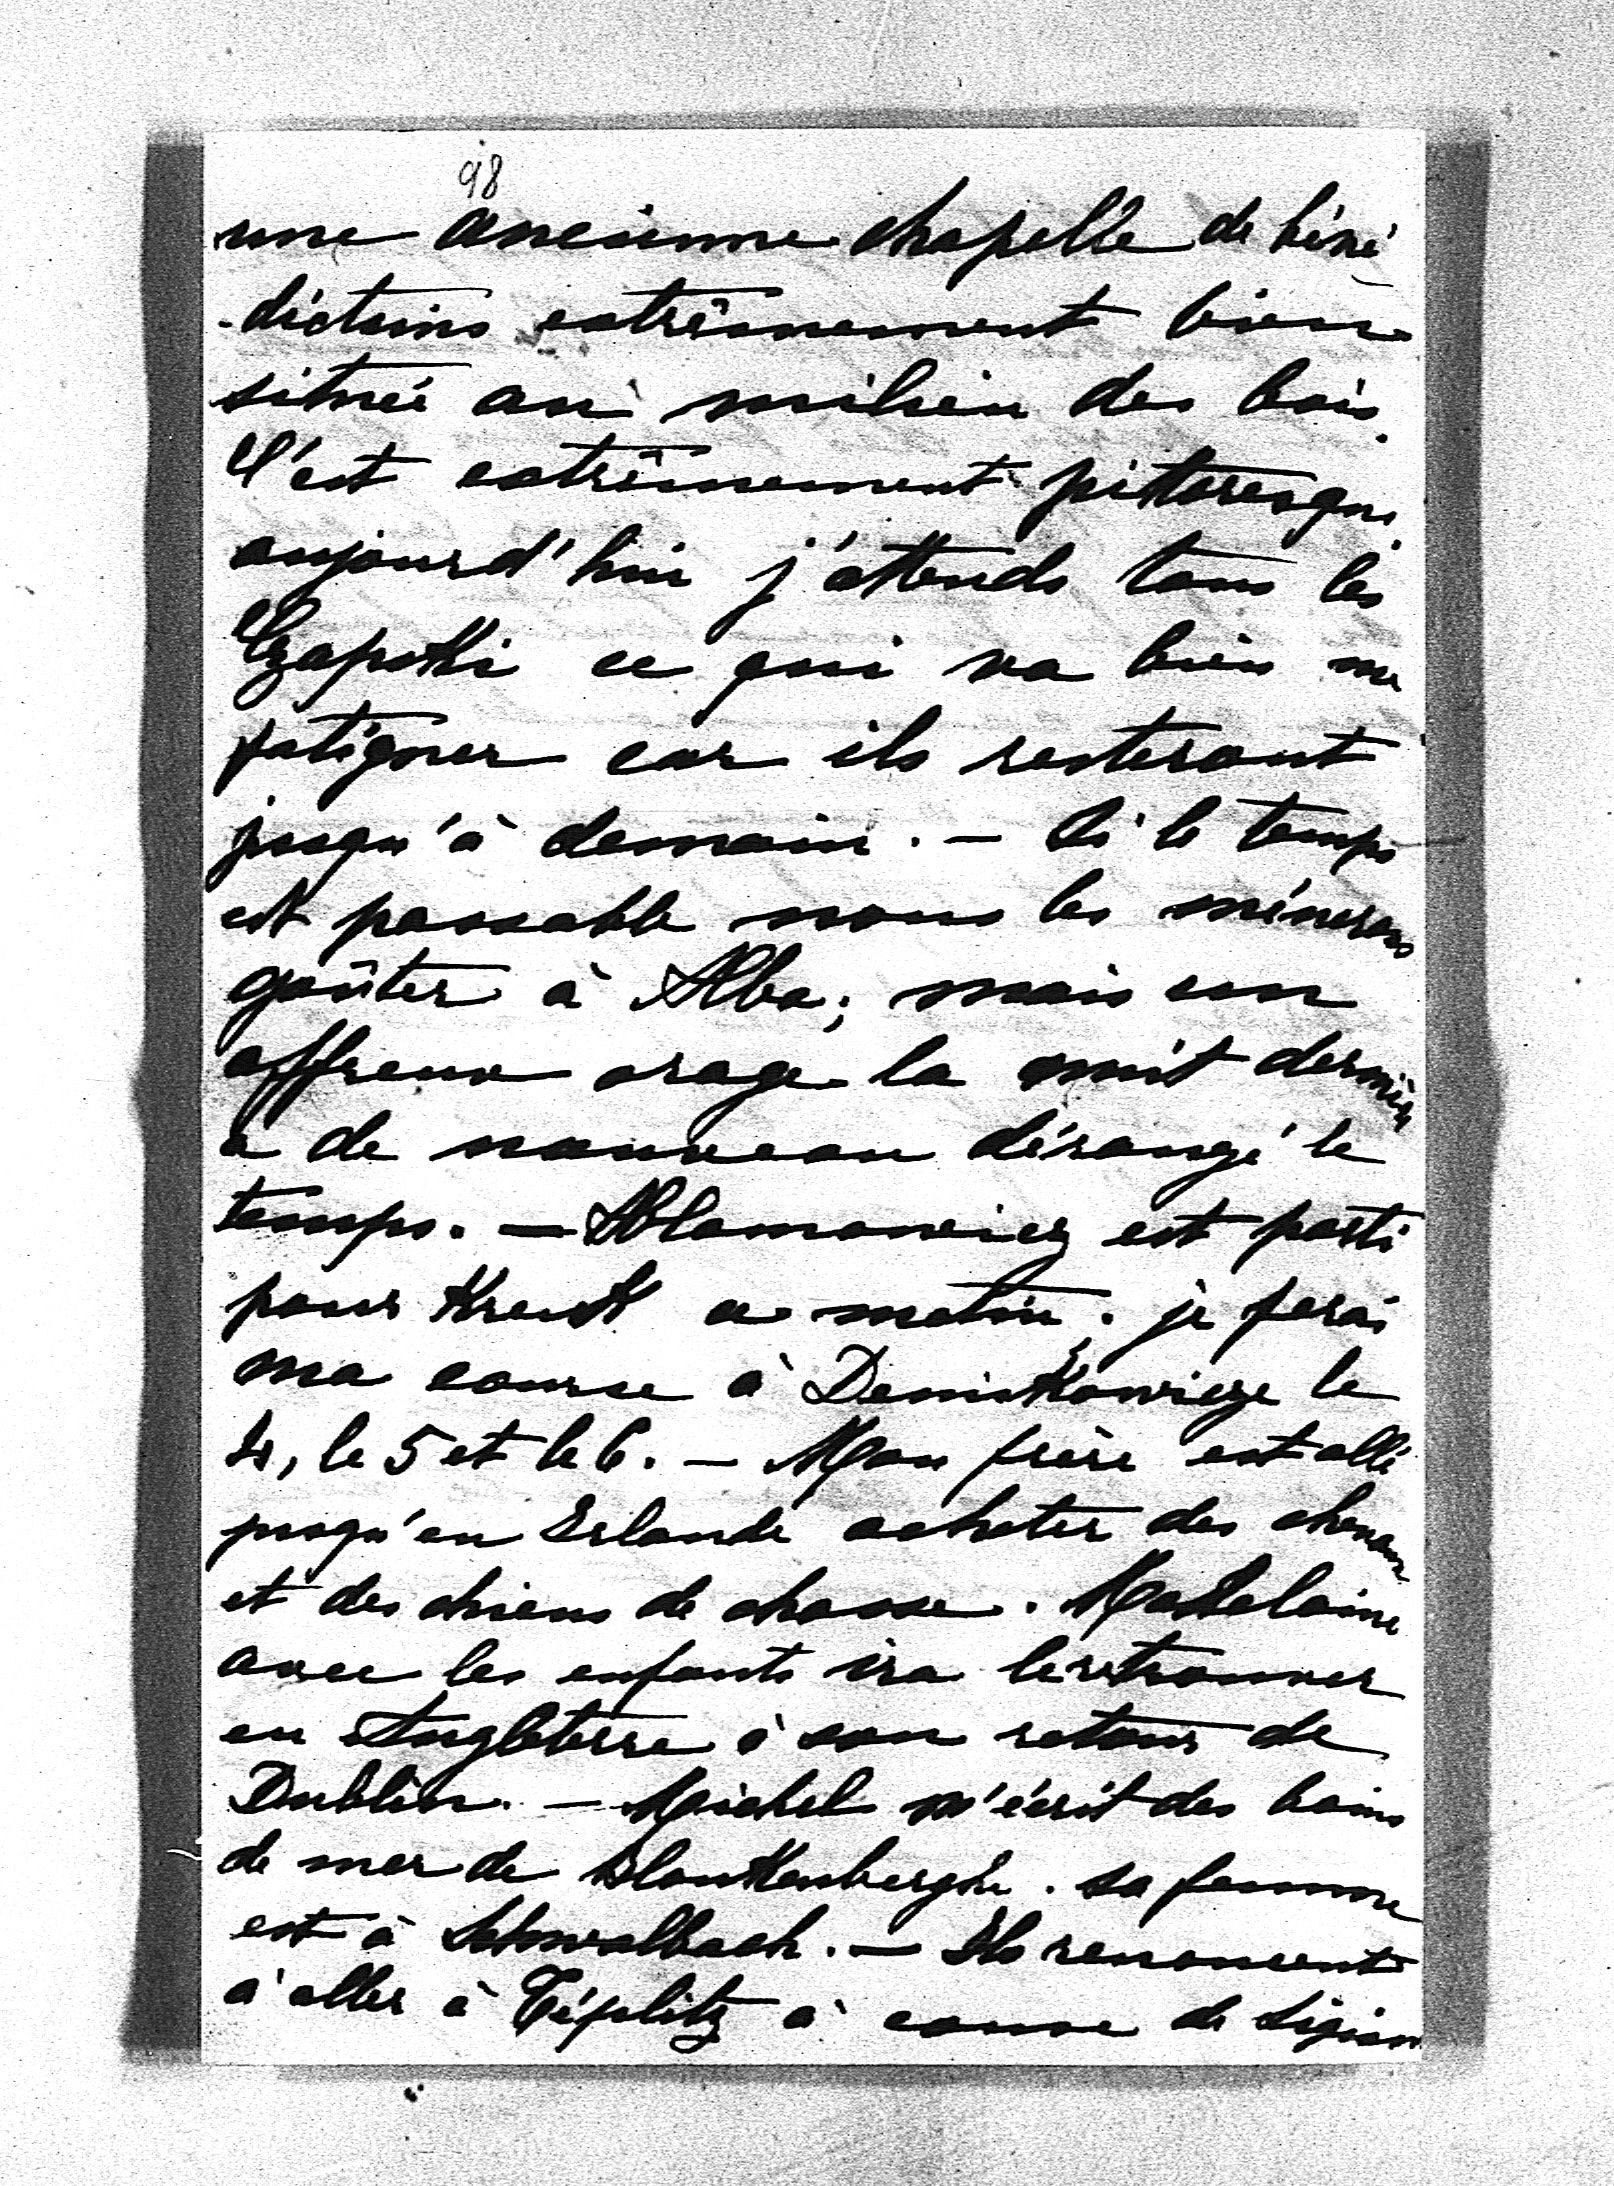 98
une ancienne chapelle de béné
-dictins extrêmement bien
située au milieu des bois.
C'est extrêmement pittoresque
aujourd'hui j'attends tous les
Czapski ce qui va bien me
fatiguer car ils resteront
jusqu'à demain. — Si le temps
est passable nous les mènerons
goûter à Alba; mais un
affreux orage la nuit dernière
a de nouveau dérangé le
temps. — Ablamowicz est parti
pour ce matin; je ferai
ma course à Deniskowicze le
4, le 5 et le 6. — Mon frère est allé
jusqu'en Irlande acheter des chevaux
et des chiens de chasse. Madelaine
avec les enfants ira le retrouver
en Angleterre à son retour de
Dublin. — Michel m'écrit des bains
de mer de Blankenberghe. sa femme
est à Schwalbach. — Ils renoncent
à aller à Téplitz à cause de